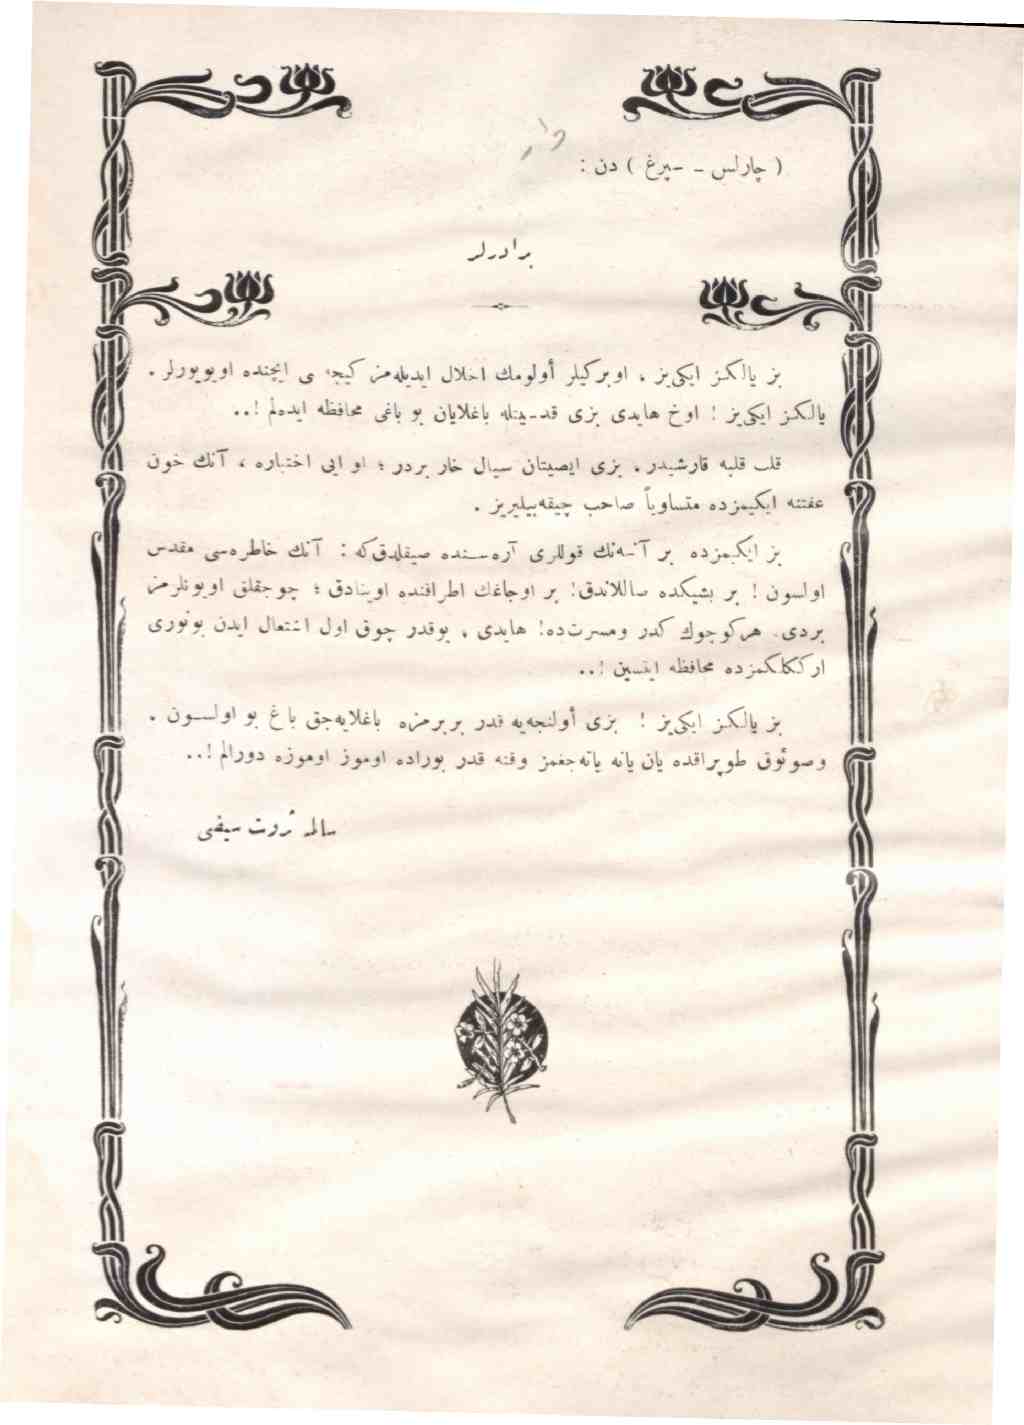 ( چارلس - سپرغ ) دن :
برادرلر
بز يالكز ايكى‌يز . اوبركيلر أولومك اخلال ايديله‌مز كيجه ى ايچنده اويويورلر .
يالكز ايكى‌يز ! اوخ هايدى بزى باغلايان بو باغى محافظه ايده‌لم !..
قلب قلبه قارشيدر . بزى ايصيتان سيال حار بردر ؛ او ايى اختياره ، آنك خون
عفتنه ايكيمزده متساوياً صاحب چيقه‌بيليريز .
بز ايكيمزده بر آننه‌نك قوللرى آره‌سنده صيقلدق‌كه : آنك خاطره‌سى مقدس
اولسون ! بر بشيكده صاللاندق! بر اوجاغك اطرافنده اوينادق ؛ چوجقلق اويونلرمز
بردى. هركوچوك كدر ومسرت‌ده! هايدى ، بوقدر چوق اول اشتعال ايدن بونورى
اركككلكمزده محافظه ايتسين !..
بز يالكز ايكى‌يز ! بزى أولنجه‌يه قدر بربرمزه باغلايه‌جق باغ بو اولسون .
وصوئوق طوپراقده يان يانه ياته‌جغمز وقته قدر بوراده اوموز اوموزه دورالم !..
سالمه ثروت سيفى